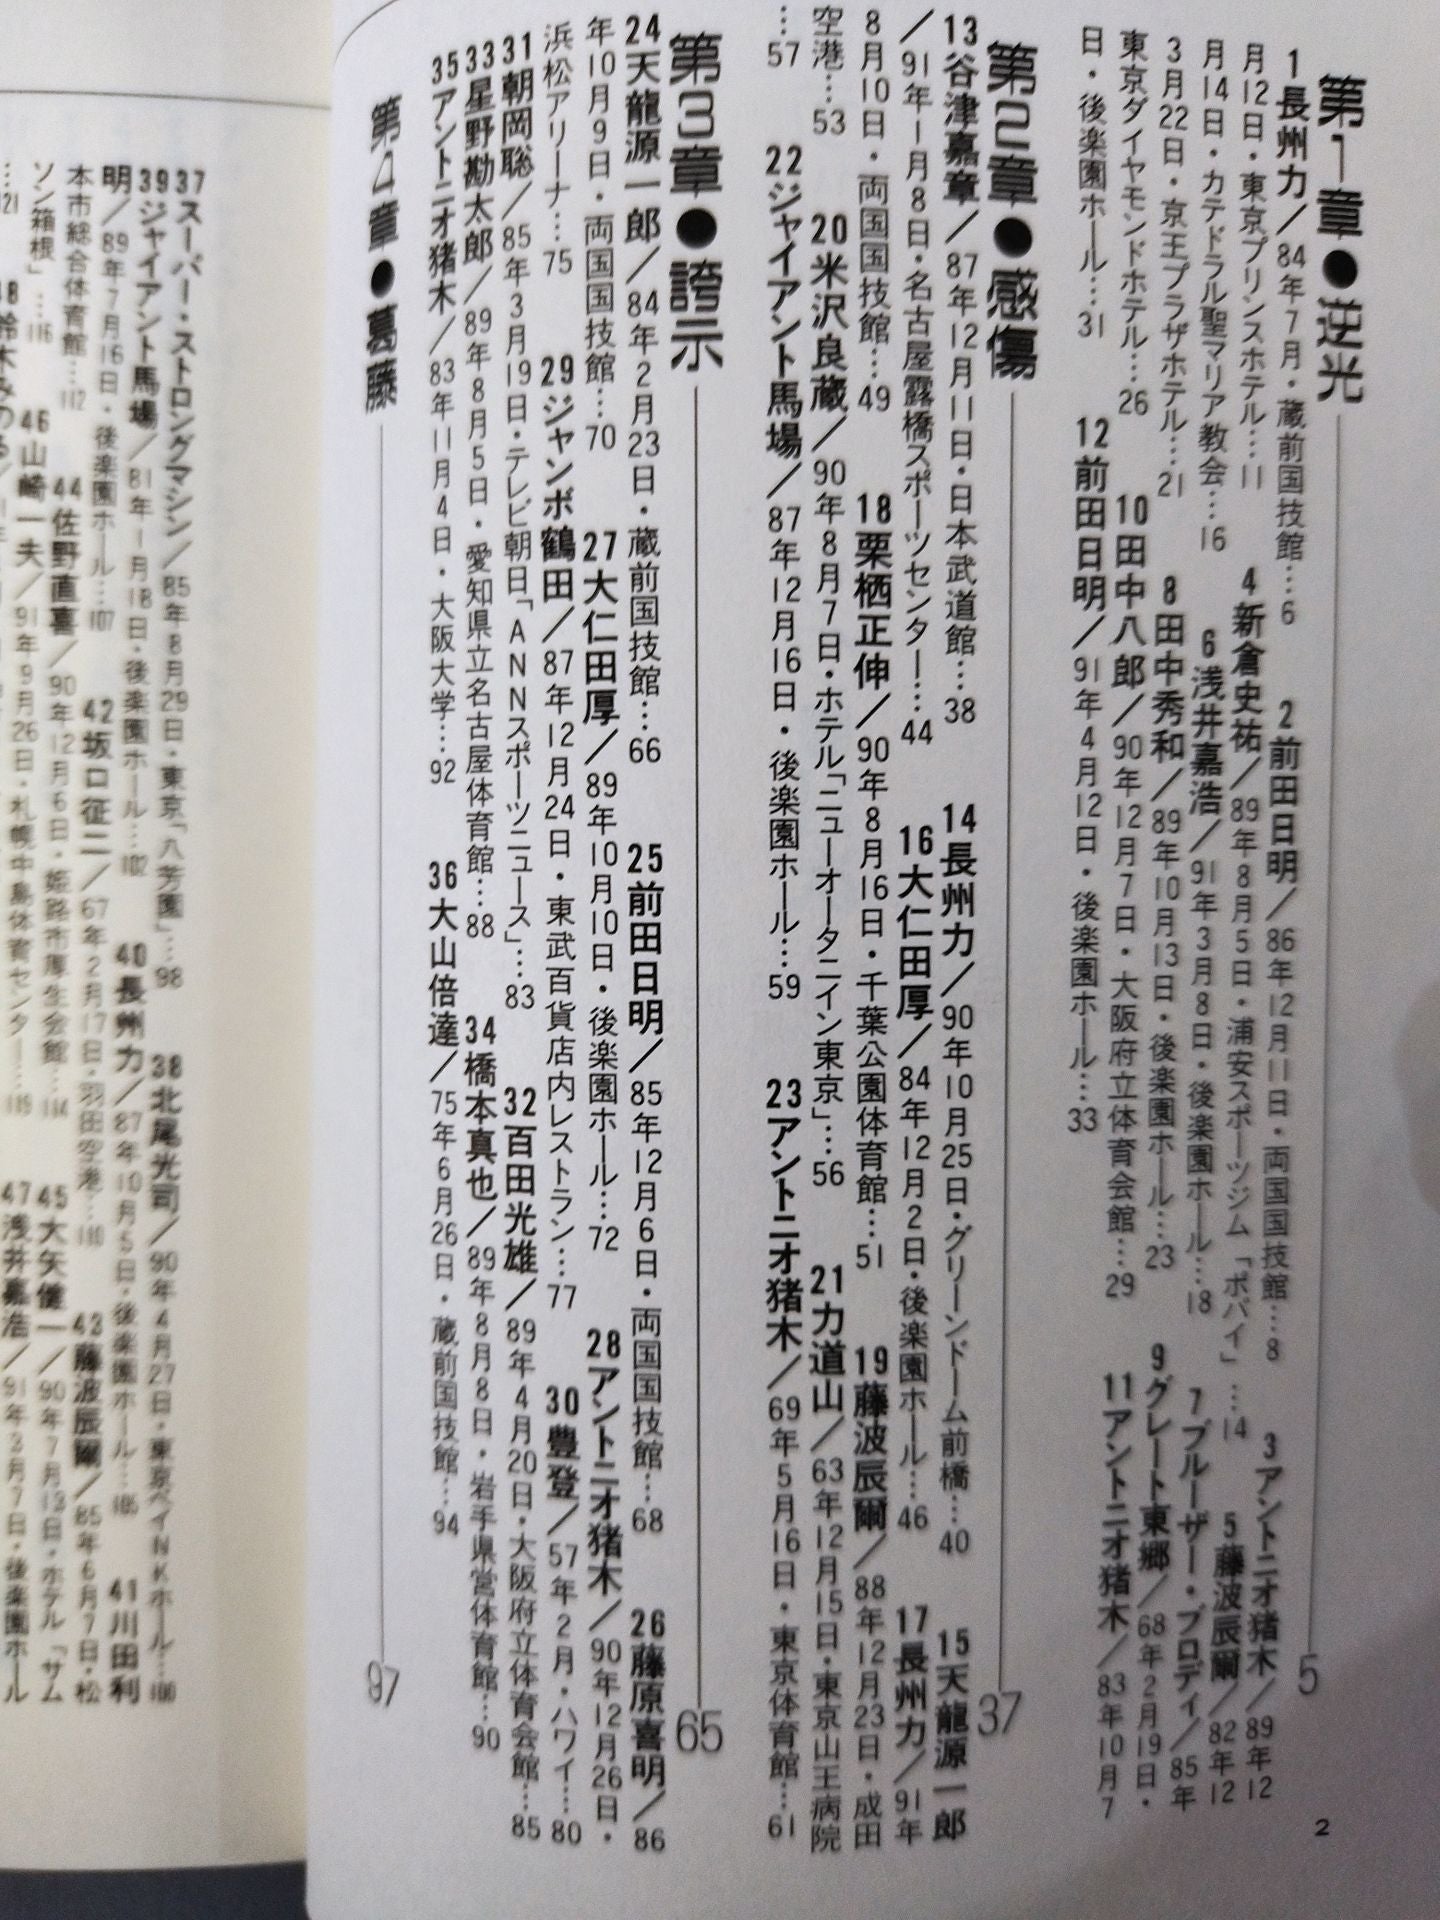 第1章●逆光 5
1長州力／84年7月・蔵前国技館…6 2前田日明／86年12月11日・両国国技館…8 3アントニオ猪木／89年12
月12日・東京プリンスホテル…11 4新倉史祐／89年8月5日・浦安スポーツジム「ポパイ」…14 5藤波辰爾／82年12
月14日・カテドラル聖マリア教会…16 6浅井嘉浩／91年3月8日・後楽園ホール…18 7ブルーザー・ブロディ／85年
3月22日・京王プラザホテル…21 8田中秀和／89年10月13日・後楽園ホール…23 9グレート東郷／68年2月19日・
東京ダイヤモンドホテル…26 10田中八郎／90年12月7日・大阪府立体育会館…29 11アントニオ猪木／83年10月7
日・後楽園ホール…31 12前田日明／91年4月12日・後楽園ホール…33
第2章●感傷 37
13谷津嘉章／87年12月11日・日本武道館…38 14長州力／90年10月25日・グリーンドーム前橋…40 15天龍源一郎
／91年1月8日・名古屋露橋スポーツセンター…44 16大仁田厚／84年12月2日・後楽園ホール…46 17長州力／91年
8月10日・両国国技館…49 18栗栖正伸／90年8月16日・千葉公園体育館…51 19藤波辰爾／88年12月23日・成田
空港…53 20米沢良蔵／90年8月7日・ホテル「ニューオータニイン東京」…56 21力道山／63年12月15日・東京山王病院
…57 22ジャイアント馬場／87年12月16日・後楽園ホール…59 23アントニオ猪木／69年5月16日・東京体育館…61
第3章●誇示 65
24天龍源一郎／84年2月23日・蔵前国技館…66 25前田日明／85年12月6日・両国国技館…68 26藤原喜明／86
年10月9日・両国国技館…70 27大仁田厚／89年10月10日・後楽園ホール…72 28アントニオ猪木／90年12月26日・
浜松アリーナ…75 29ジャンボ鶴田／87年12月24日・東武百貨店内レストラン…77 30豊登／57年2月・ハワイ…80
31朝岡聡／85年3月19日・テレビ朝日「ANNスポーツニュース」…83 32百田光雄／89年4月20日・大阪府立体育会館…85
33星野勘太郎／89年8月5日・愛知県立名古屋体育館…88 34橋本真也／89年8月8日・岩手県営体育館…90
35アントニオ猪木／83年11月4日・大阪大学…92 36大山倍達／75年6月26日・蔵前国技館…94
第4章●葛藤 97
2
37スーパー・ストロングマシン／85年8月29日・東京「八芳園」…98 38北尾光司／90年4月27日・東京ベイNKホール…100
39ジャイアント馬場／81年1月18日・後楽園ホール…102 40長州力／87年10月5日・後楽園ホール…105 41川田利
明／89年7月16日・後楽園ホール…107 42坂口征二／67年2月17日・羽田空港…110 43藤波辰爾／85年6月7日・松
本市総合体育館…112 44佐野直喜／90年12月6日・姫路市厚生会館…114 45大矢健一／90年7月13日・ホテル「サム
ソン箱根」…116 46山崎一夫／91年9月26日・札幌中島体育センター…119 47浅井嘉浩／91年3月7日・後楽園ホール
…121 48鈴木みのる／